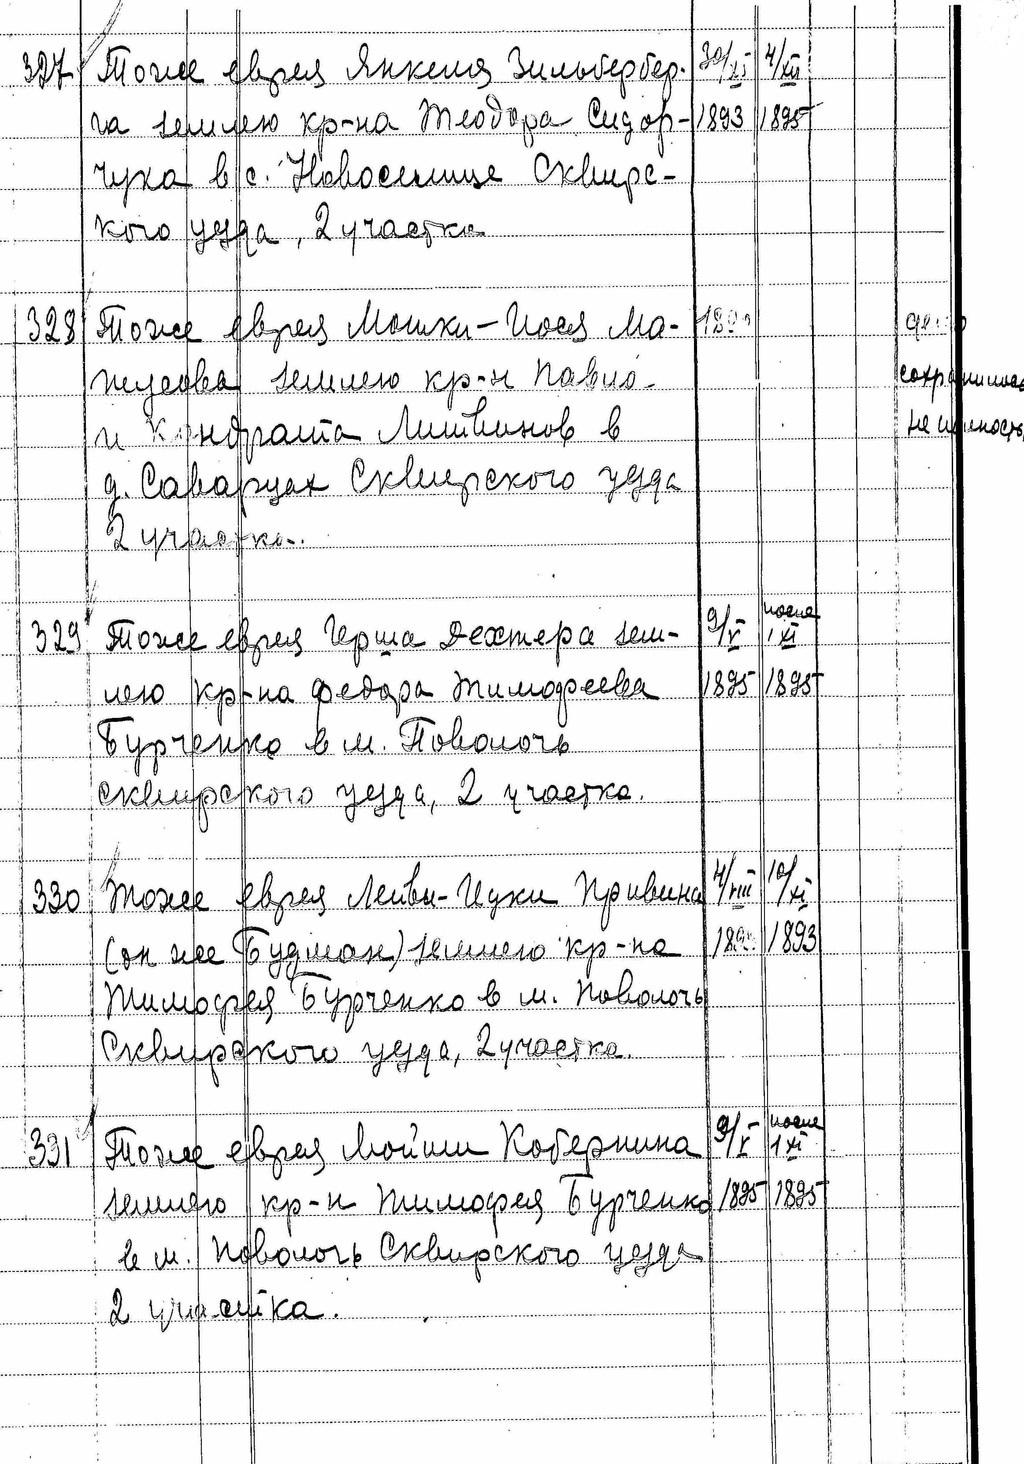 327 Тоже еврея Янкеля Зильбербер- 30/XI 4/XII
га землею кр-на Теодора Сидор- 1893 1895
чука в с. Новоселице Сквирс-
кого уезда, 2 участка
328 Тоже еврея Мошки-Иося Ма-
землею кр-н Павла
и Кондрата Литвинов в
д. Саварцах Сквирского уезда
2 участка.
сохранилось
не полность
329 Тоже еврея Герша Дехтера зем- 9/X после 1/XI
лею кр-на Федора Тимофеева 1895 1895
Бурченко в м. Поволочь
Сквирского уезда, 2 участка.
330 Тоже еврея Лейвы-Ицки Кривина 4/VIII 10/XI
(он же Будман) землею кр-на 1893
Тимофея Бурченко в м. Поволочь
Сквирского уезда, 2 участка.
331 Тоже еврея Мойши Кобернина 9/X после 1 XI
землею кр-н Тимофея Бурченко 1895 1895
в м. Поволочь Сквирского уезда
2 участка.